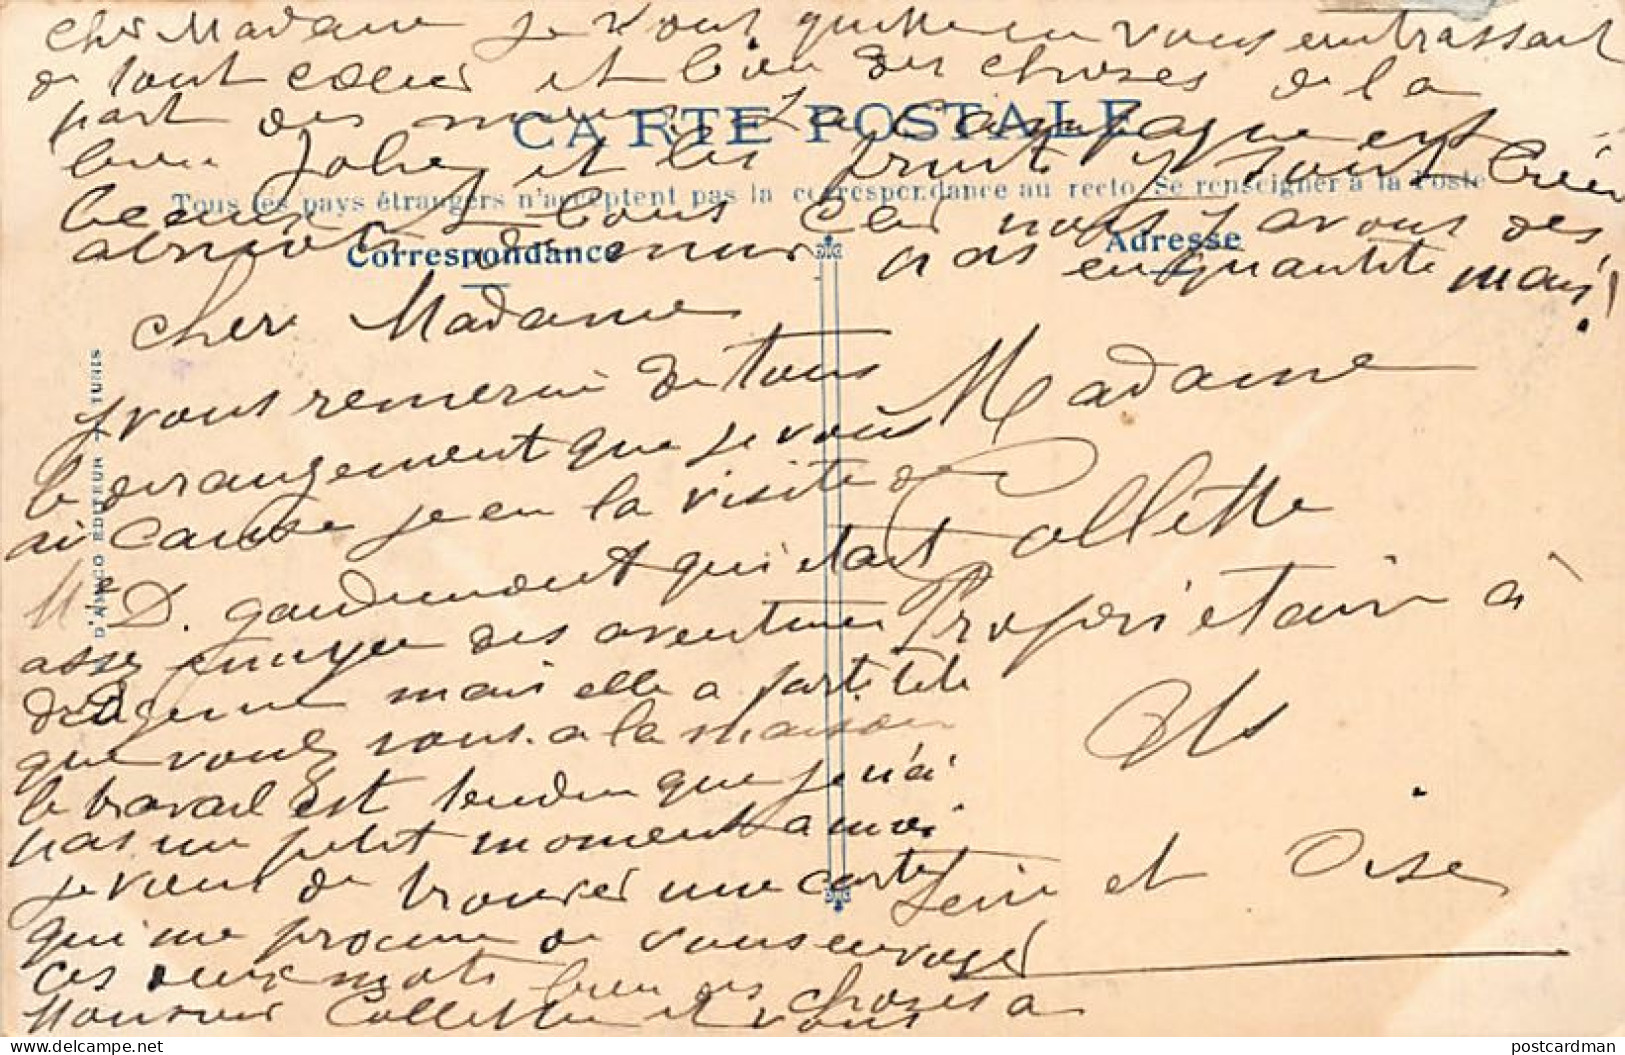 cher Madame je vous quitte en vous embrassant
de tout coeur et bien des choses de la
part des miens La campagne est
bien Jolie et les fruits y sont bien
beaux et tous cela nous y avons des
abricots de murs pas en quantite mais!
CARTE POSTALE
Tous les pays étrangers n'acceptent pas la correspondance au recto. Se renseigner à la Poste
Correspondance
Adresse
D'AMICO EDITEUR - TUNIS
cher Madame
je vous remerci de tous
le derangement que je vous
ai cause je eu la visite de
Me D. gaudumont qui etait
assez ennuyee des aventures
mais elle a partitete
que voulez vous. a la maison
le travail est tendu que je n'ai
pas un petit moment a moi
je viens de trouver une carte
qui me procure de vous envoyer
ces deux mots bien des choses a
Monsieur Collette et vous
Madame
Collette
Propriétaire à
Als
Seine et Oise
postcardman